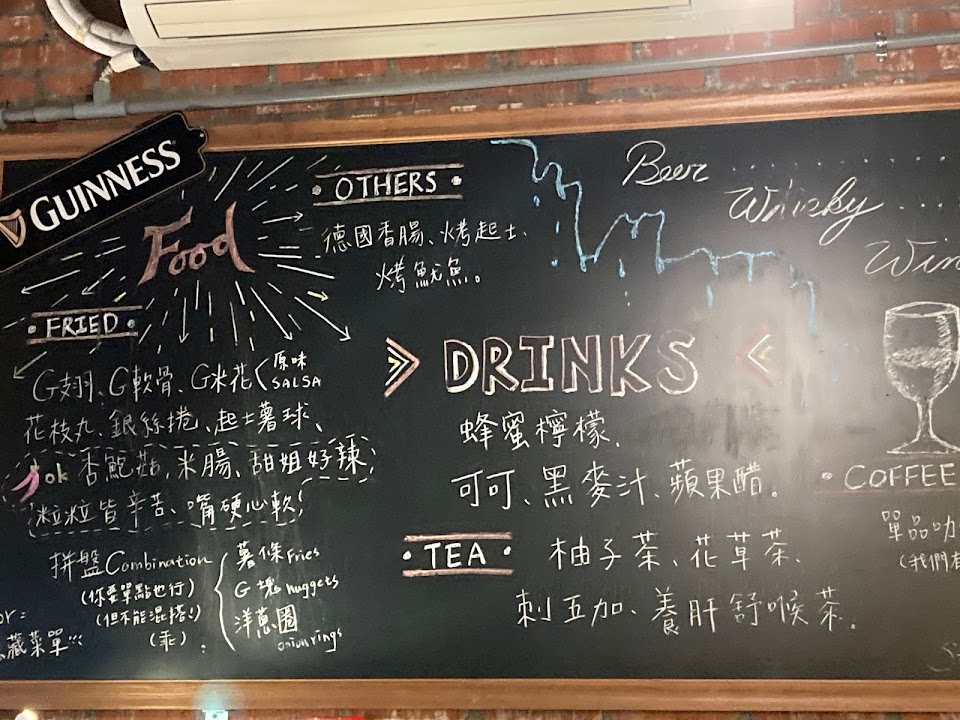 GUINNESS
Food
OTHERS
德國香腸、烤起士、
烤魷魚。
FRIED
G翅、G軟骨、G米花 原味
SALSA
花枝丸、銀絲捲、起士薯球、
ok 杏鮑菇、米腸、甜姐好辣,
粒粒皆辛苦、嘴硬心軟!
拼盤Combination
(你要單點也行)
(但不能混搭!)
(乖)
薯條Fries
G塊nuggets
洋蔥圈
onion rings
or:
藏菜單!!!
Beer ..........
Whisky ....
Win
DRINKS
蜂蜜檸檬、
可可、黑麥汁、蘋果醋。
TEA
柚子茶、花草茶、
刺五加、養肝舒喉茶。
COFFEE
單品咖
(我們有